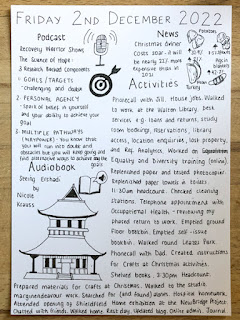 FRIDAY 2ND DECEMBER 2022
Podcast
Recovery Warrior Shows
The Science of Hope -
3 Research Based Components
1. GOALS / TARGETS
- challenging and doable
2. PERSONAL AGENCY
- Spirit of belief in yourself
and your ability to achieve your
goal
3. MULTIPLE PATHWAYS
(WAYPOWER) - You know that
you will run into doubt and
obstacles but you keep going and
find alternative ways to achieve the
goals
Audiobook
Seeing Ershadi
by
Nicole
Krauss
News
Christmas dinner
Costs soar - it will
be nearly 22% more
expensive than in
2021
Potatoes
Pigs in
blankets
Turkey
Activities
Phonecall with Jill. House jobs. Walked
to work at the Wilton Library. Desk
services e.g. loans and returns, study
room bookings, reservations, library
access, location enquiries, lost property,
and Ref Analytics. Worked on
Equality and Diversity training (online).
Replenished paper and tested photocopier.
Replenished paper towels in toilets.
11.30am headcount. Checked cleaning
stations. Telephone appointment with
Occupational Health - reviewing my
phased return to work. Emptied ground
floor bookbin. Emptied self-issue
bookbin. Walked round Leazes Park.
Phonecall with Dad. Created instructions
for Crafts at Christmas activities.
Shelved books. 3.30pm headcount.
Prepared materials for Crafts at Christmas. Walked to the studio.
Searched for (and found) apron.
Attended opening of Shieldfield Home exhibition at the NewBridge Project.
Chatted with friends. Walked home. Rest day. Updated blog. Online admin. Journal.